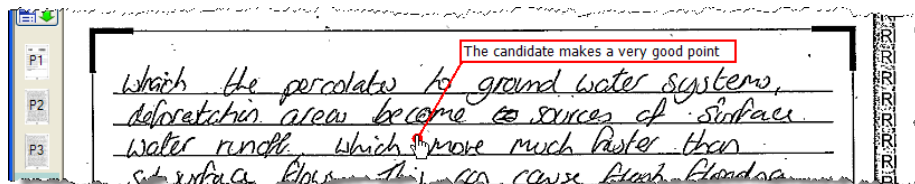 The candidate makes a very good point
P1
which the percolates to ground water systems,
deforestation areas become sources of surface
P2
water runoff. which move much faster than
P3
subsurface flows. This can cause flash flooding
R
R
R
R
R
RI
R